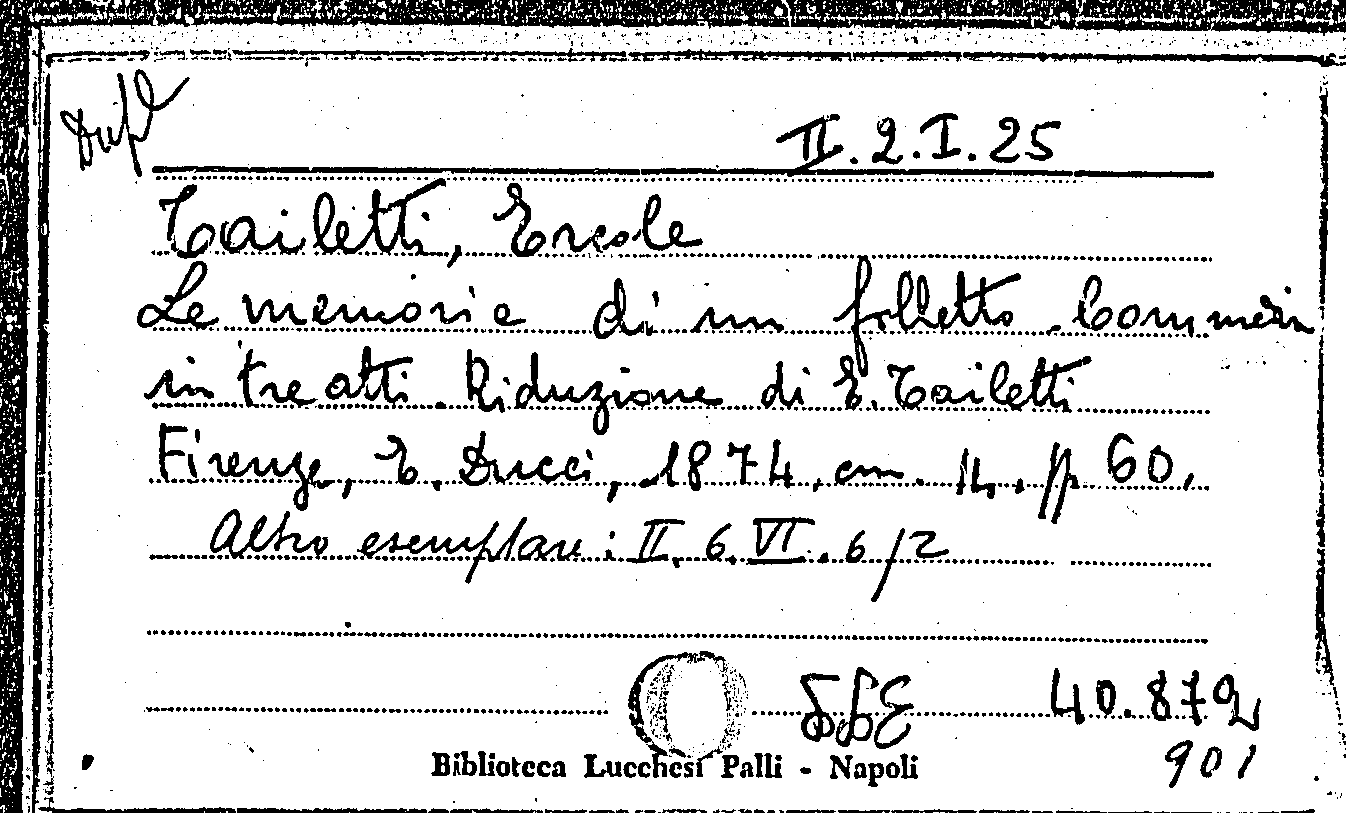 Dupl
II.2.I.25
Tailetti, Ercole
Le memorie di un folletto. Commedia
in tre atti. Riduzione di E. Tailetti
Firenze, E. Ducci, 1874. cm. 14. pp 60.
Altro esemplare: II.6.VI.6/2
40.872
901
Biblioteca Lucchesi Palli - Napoli